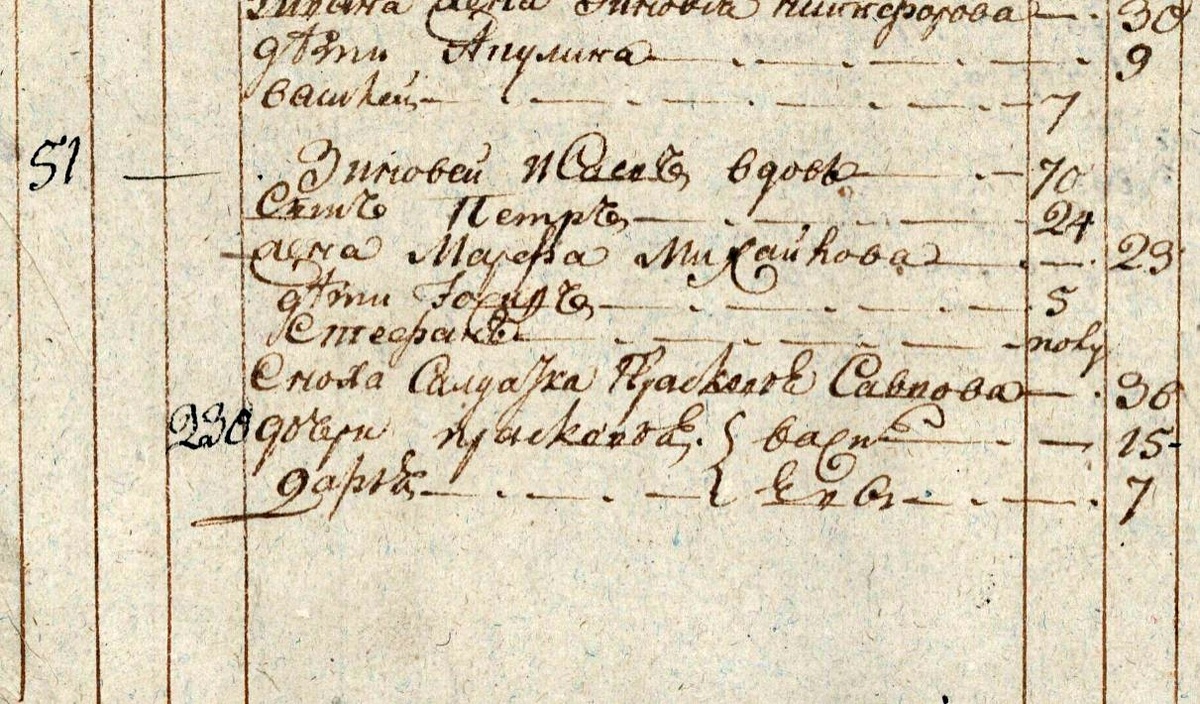 жена Зиновia никифорова 30
дѣти Акулина 9
васи́лей 7
51 Зиновей Исаевъ вдовъ 70
Сынъ Петръ 24
жена Марфа Михайлова 23
дѣти Iосифъ 5
Стефанъ полу
Сноха Салдатка Прасковья Савинова 36
230 дочери прасковья 15
дарья 7